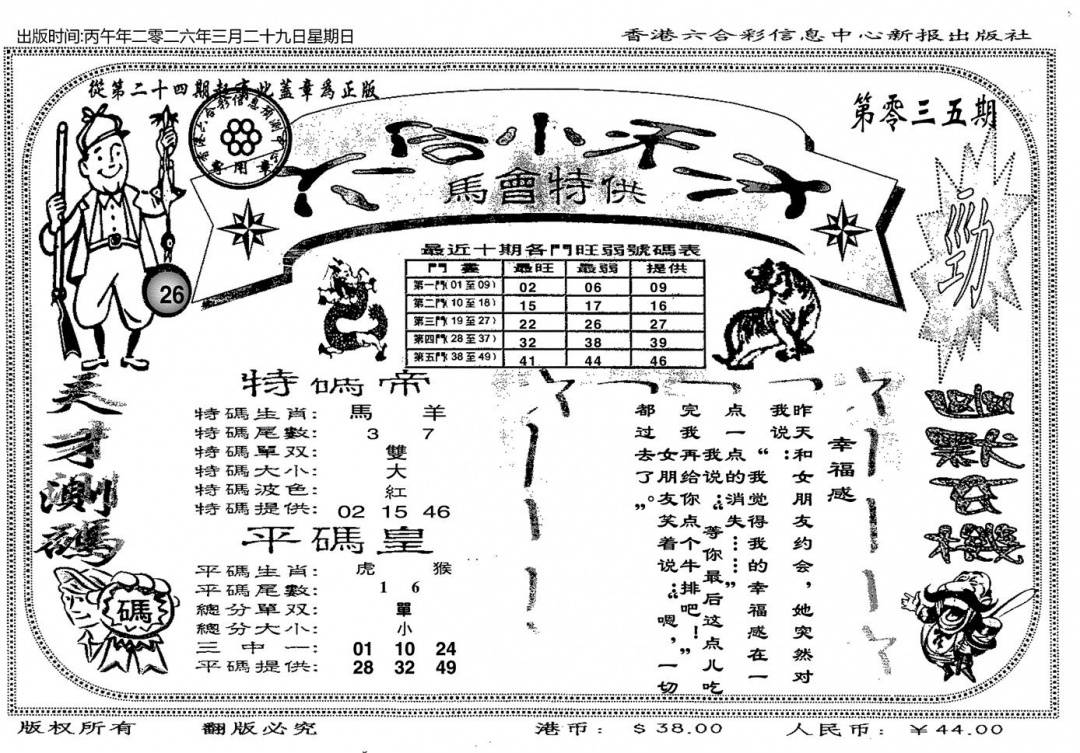 出版时间:丙午年二零二六年三月二十九日星期日
香港六合彩信息中心新报出版社
從第二十四期起有此蓋章爲正版
第零三五期
專用章
馬會特供
勁
26
最近十期各門旺弱號碼表
門畫 最旺 最弱 提供
第一門(01至09) 02 06 09
第二門(10至18) 15 17 16
第三門(19至27) 22 26 27
第四門(28至37) 32 38 39
第五門(38至49) 41 44 46
天才測碼
碼
特碼帝
特碼生肖: 馬 羊
特碼尾數: 3 7
特碼單双: 雙
特碼大小: 大
特碼波色: 紅
特碼提供: 02 15 46
平碼皇
平碼生肖: 虎 猴
平碼尾數: 1 6
總分單双: 單
總分大小: 小
三中一: 01 10 24
平碼提供: 28 32 49
幸福感
昨天和女朋友约会，她突然对
我说：“我觉得我的幸福感在一
点一点的消失……”
我说：“等你最后这点儿吃
完我再给你点个牛排吧！”
女朋友笑着说：“嗯，一切
都过去了。”
幽默玄機
版权所有
翻版必究
港币： $38.00
人民币： ￥44.00